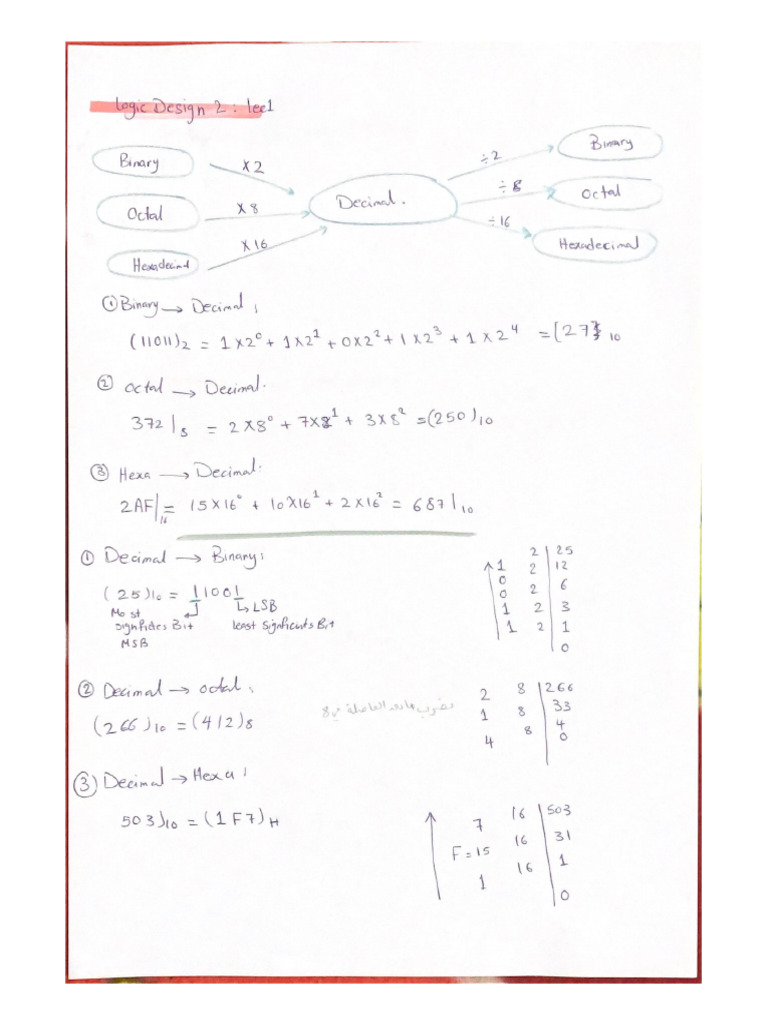 Logic Design 2 : lec1
Binary ×2 ÷2 Binary
Octal ×8 Decimal. ÷8 Octal
Hexadecimal ×16 ÷16 Hexadecimal
① Binary → Decimal ;
(11011)₂ = 1×2⁰ + 1×2¹ + 0×2² + 1×2³ + 1×2⁴ = (27)₁₀
② Octal → Decimal.
372|₈ = 2×8⁰ + 7×8¹ + 3×8² = (250)₁₀
③ Hexa → Decimal:
2AF|₁₆ = 15×16⁰ + 10×16¹ + 2×16² = 687|₁₀
① Decimal → Binary:
(25)₁₀ = 11001
Most
LSB
signficates Bit
least Signficents Bit
MSB
1 2 | 25
0 2 | 12
0 2 | 6
1 2 | 3
1 2 | 1
0
② Decimal → octal ;
(266)₁₀ = (412)₈
نضرب مابعد الفاصلة في 8
2 8 | 266
1 8 | 33
4 8 | 4
0
③ Decimal → Hexa ;
503)₁₀ = (1F7)H
7 16 | 503
F = 15 16 | 31
1 16 | 1
0